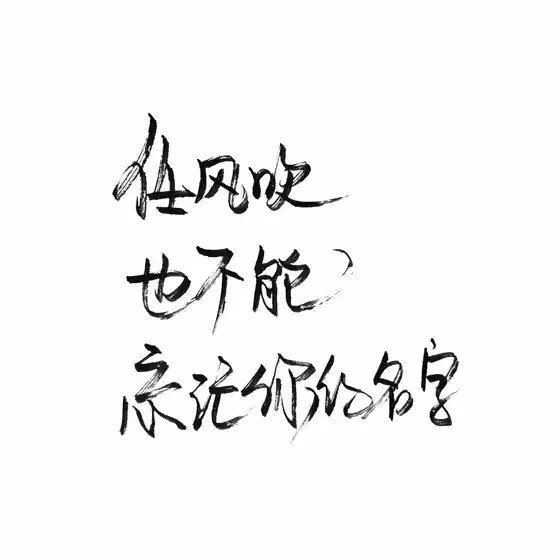 任风吹
也不能
你的名字